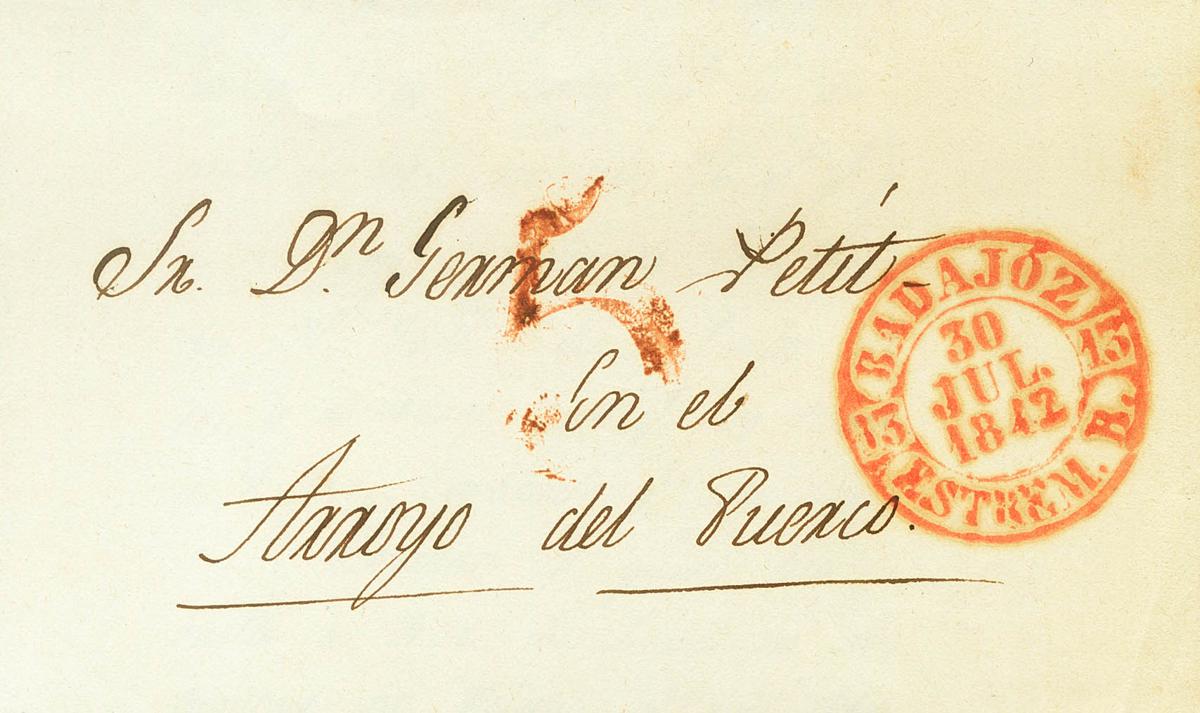 Sr. Dn German Petit
5
En el
Arroyo del Puerco.
BADAJÓZ
13
30
JUL.
1842
13
ESTREM. B.